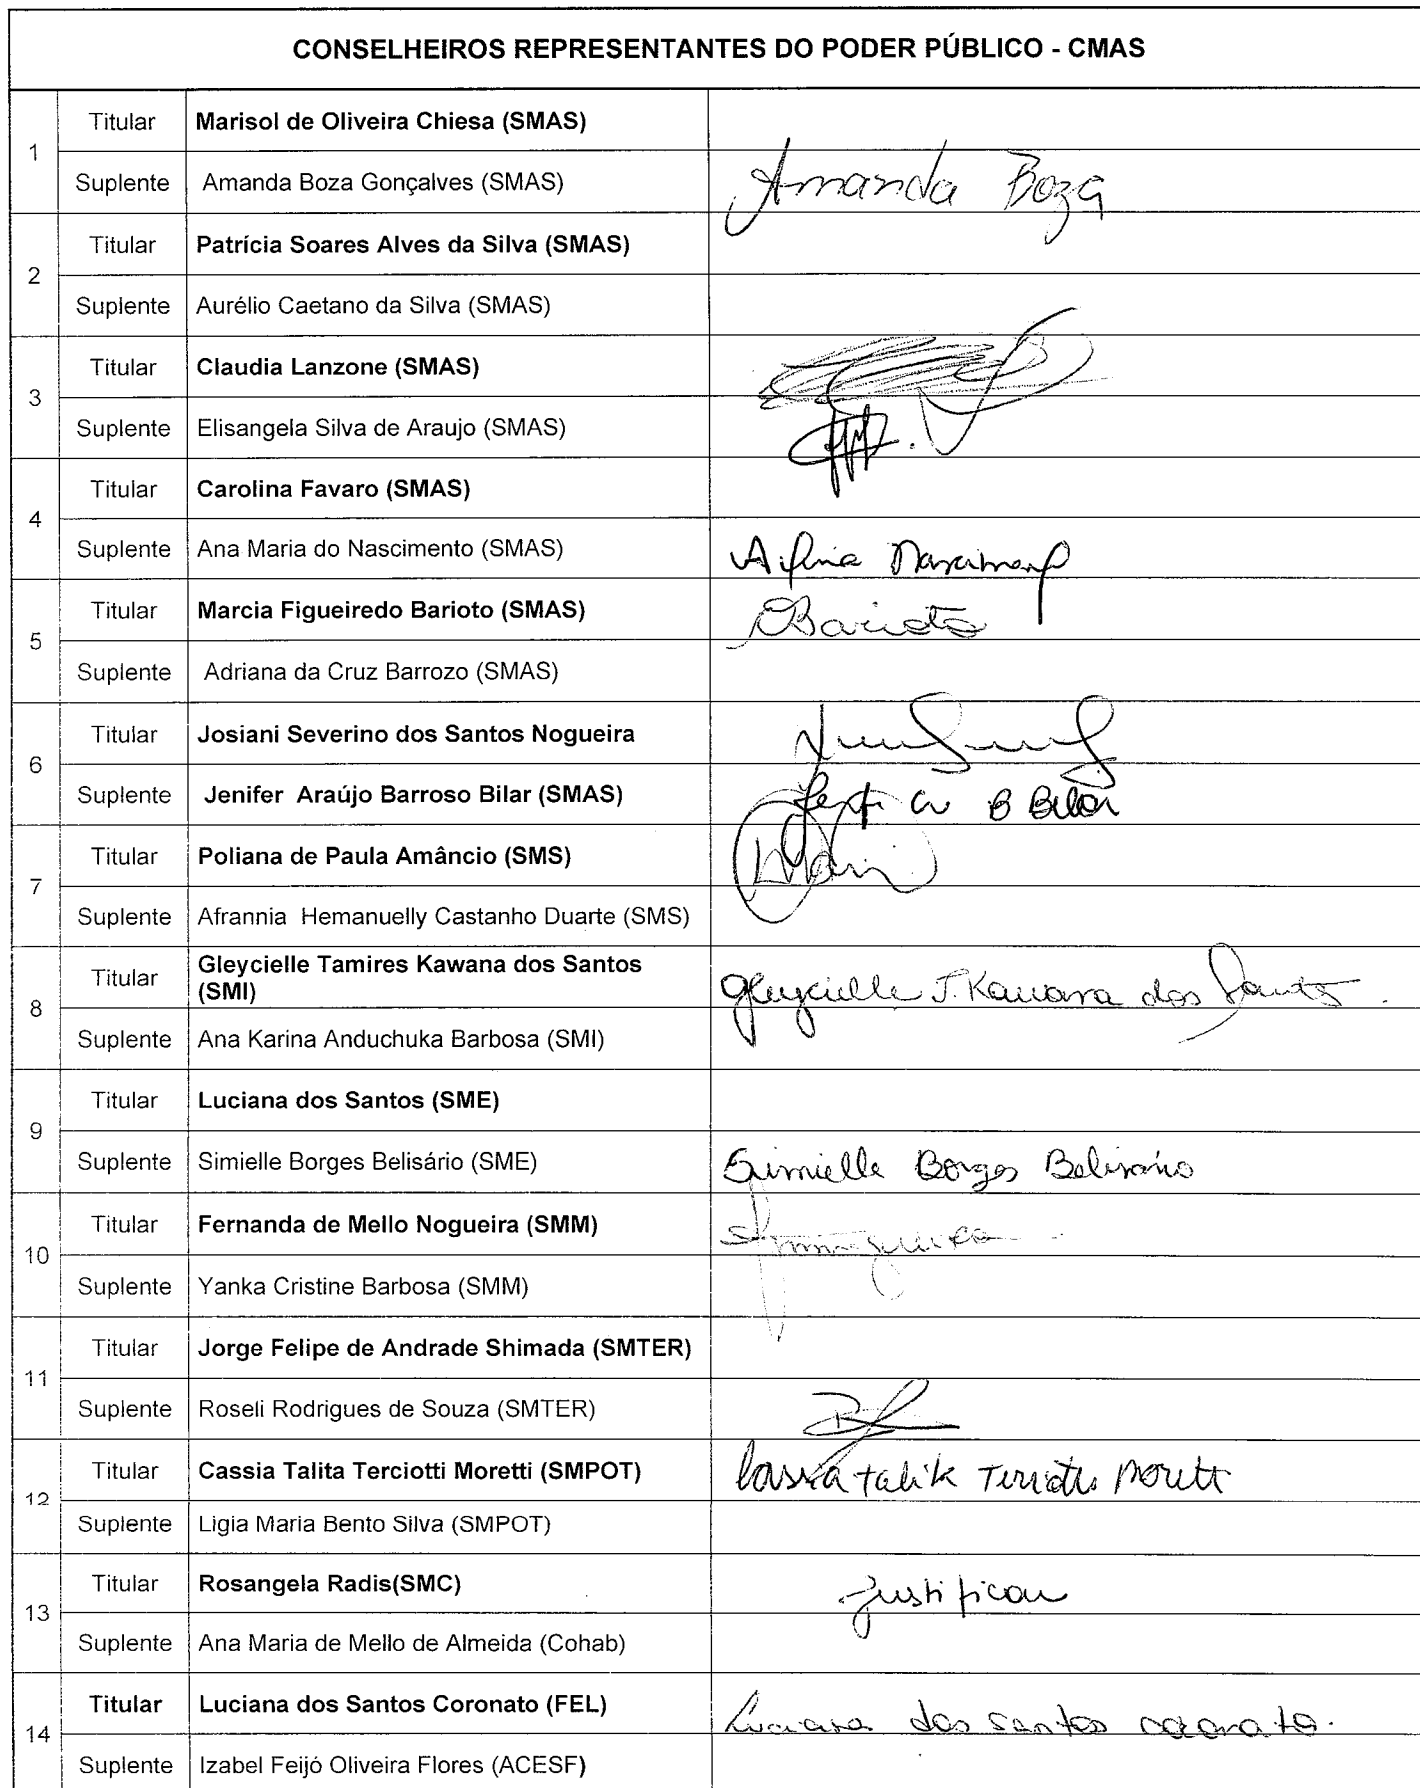 CONSELHEIROS REPRESENTANTES DO PODER PÚBLICO - CMAS
1
Titular Marisol de Oliveira Chiesa (SMAS)
Suplente Amanda Boza Gonçalves (SMAS) Amanda Boza
2
Titular Patrícia Soares Alves da Silva (SMAS)
Suplente Aurélio Caetano da Silva (SMAS)
3
Titular Claudia Lanzone (SMAS)
Suplente Elisangela Silva de Araujo (SMAS)
4
Titular Carolina Favaro (SMAS)
Suplente Ana Maria do Nascimento (SMAS)
5
Titular Marcia Figueiredo Barioto (SMAS) Barioto
Suplente Adriana da Cruz Barrozo (SMAS)
6
Titular Josiani Severino dos Santos Nogueira
Suplente Jenifer Araújo Barroso Bilar (SMAS) B Bilar
7
Titular Poliana de Paula Amâncio (SMS)
Suplente Afrannia Hemanuelly Castanho Duarte (SMS)
8
Titular Gleycielle Tamires Kawana dos Santos
(SMI) Gleycielle T. Kawana dos Santos.
Suplente Ana Karina Anduchuka Barbosa (SMI)
9
Titular Luciana dos Santos (SME)
Suplente Simielle Borges Belisário (SME) Simielle Borges Belisário
10
Titular Fernanda de Mello Nogueira (SMM)
Suplente Yanka Cristine Barbosa (SMM)
11
Titular Jorge Felipe de Andrade Shimada (SMTER)
Suplente Roseli Rodrigues de Souza (SMTER)
12
Titular Cassia Talita Terciotti Moretti (SMPOT) Cassia Talita Terciotti Moretti
Suplente Ligia Maria Bento Silva (SMPOT)
13
Titular Rosangela Radis(SMC) Justificou
Suplente Ana Maria de Mello de Almeida (Cohab)
14
Titular Luciana dos Santos Coronato (FEL) Luciana dos Santos Coronato.
Suplente Izabel Feijó Oliveira Flores (ACESF)